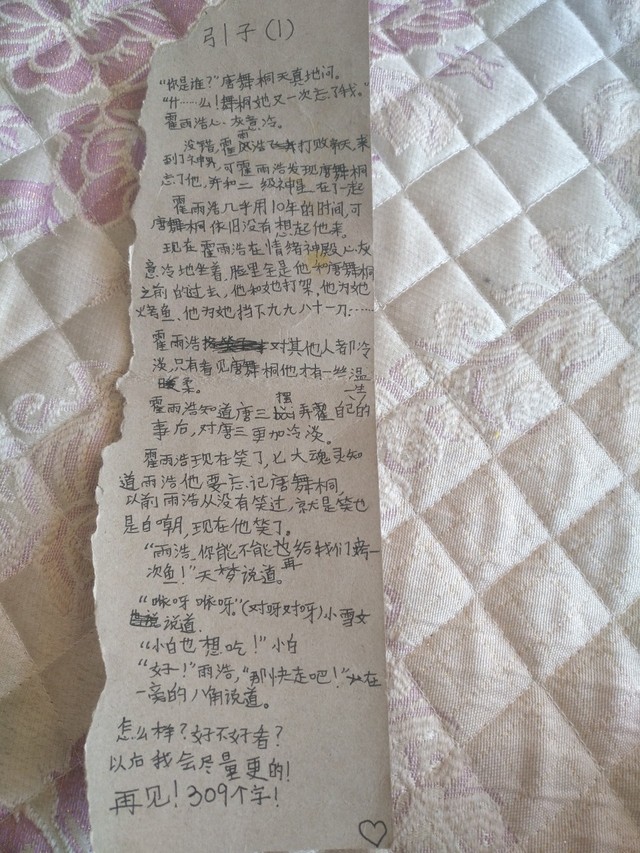 引子(1)
“你是谁?”唐舞桐天真地问。
“什……么!舞桐她又一次忘了我。”
霍雨浩心灰意冷。
没错,霍雨浩打败了天,来
到了神界,可霍雨浩发现唐舞桐
忘了他,并和二级神星在了一起
霍雨浩几乎用10年的时间,可
唐舞桐依旧没有想起他来。
现在霍雨浩在情绪神殿心灰
意冷地坐着,脸里全是他和唐舞桐
之前的过去,他和她打架,他为她
烤鱼,他为她挡下九九八十一刀……
霍雨浩对其他人都冷
淡,只有看见唐舞桐他才有一丝温
柔。
霍雨浩知道唐三摆弄霍自己的
事后,对唐三更加冷淡。
霍雨浩现在笑了,七大魂灵知
道雨浩他要忘记唐舞桐,
以前雨浩从没有笑过,就是笑也
是自嘲,现在他笑了。
“雨浩,你能不能再给我们烤一
次鱼!”天梦说道。
“咻呀咻呀。”(对呀对呀)小雪女
说道.
“小白也想吃!”小白
“好!”雨浩,“那快走吧!”在
一旁的八角说道。
怎么样?好不好看?
以后我会尽量更的!
再见!309个字!